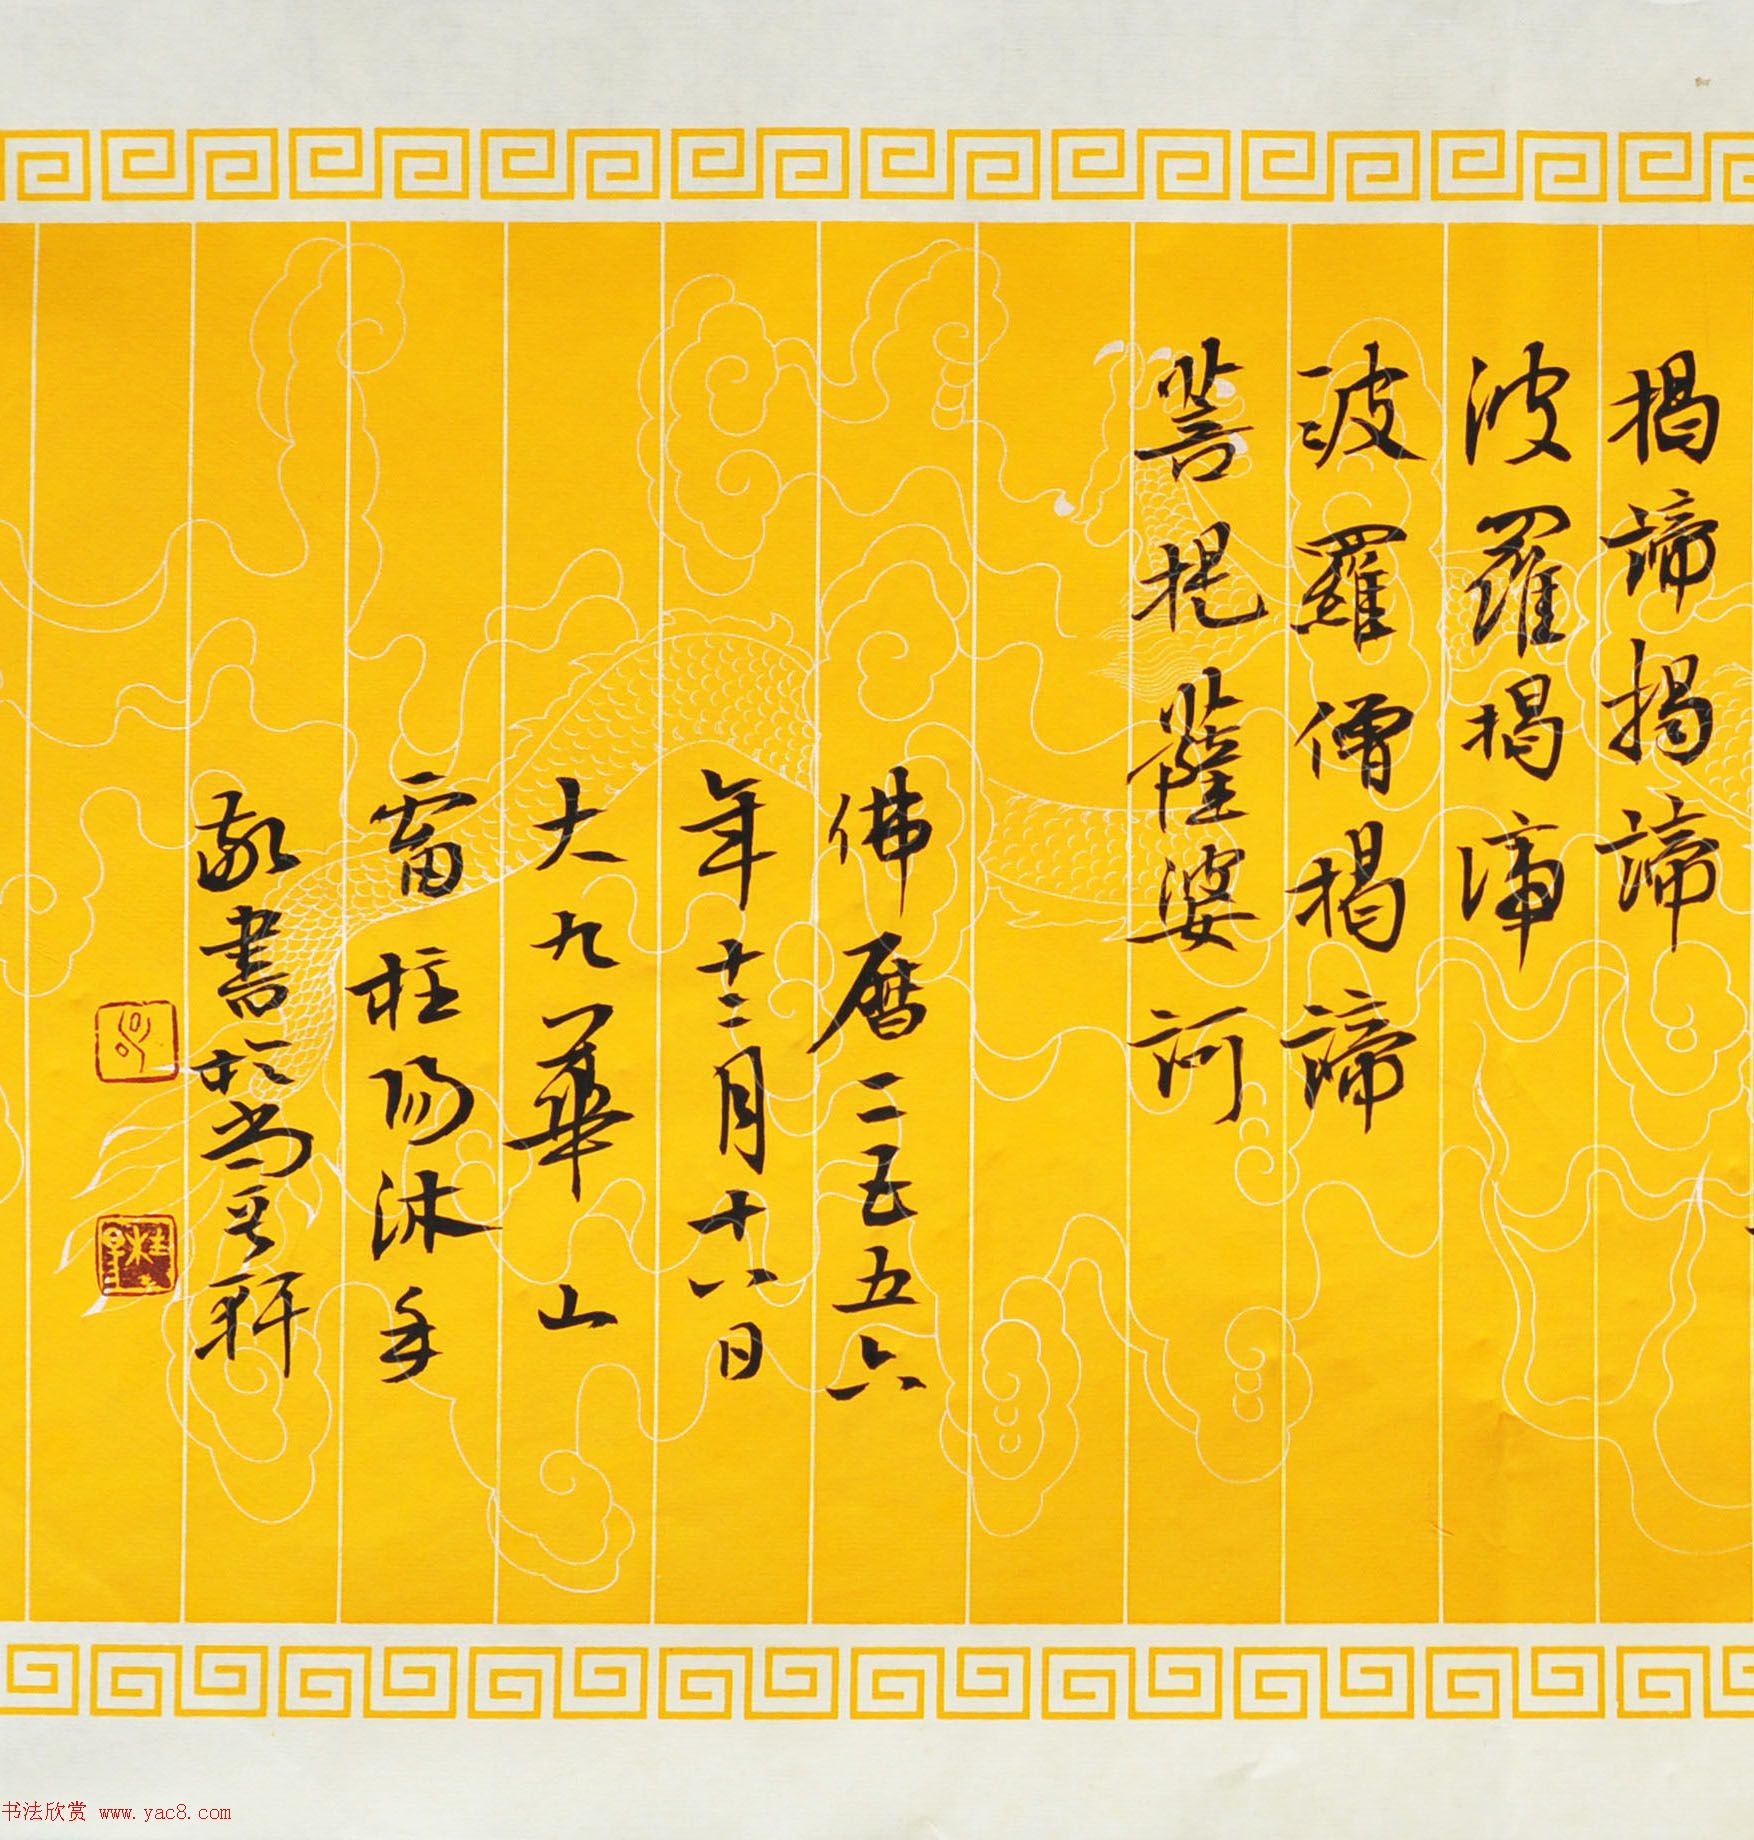 揭諦揭諦
波羅揭諦
波羅僧揭諦
菩提薩婆訶
佛曆二五五六
年十二月十八日
大九華山
雷陽沐手
敬書於尚軒
书法欣赏 www.yac8.com